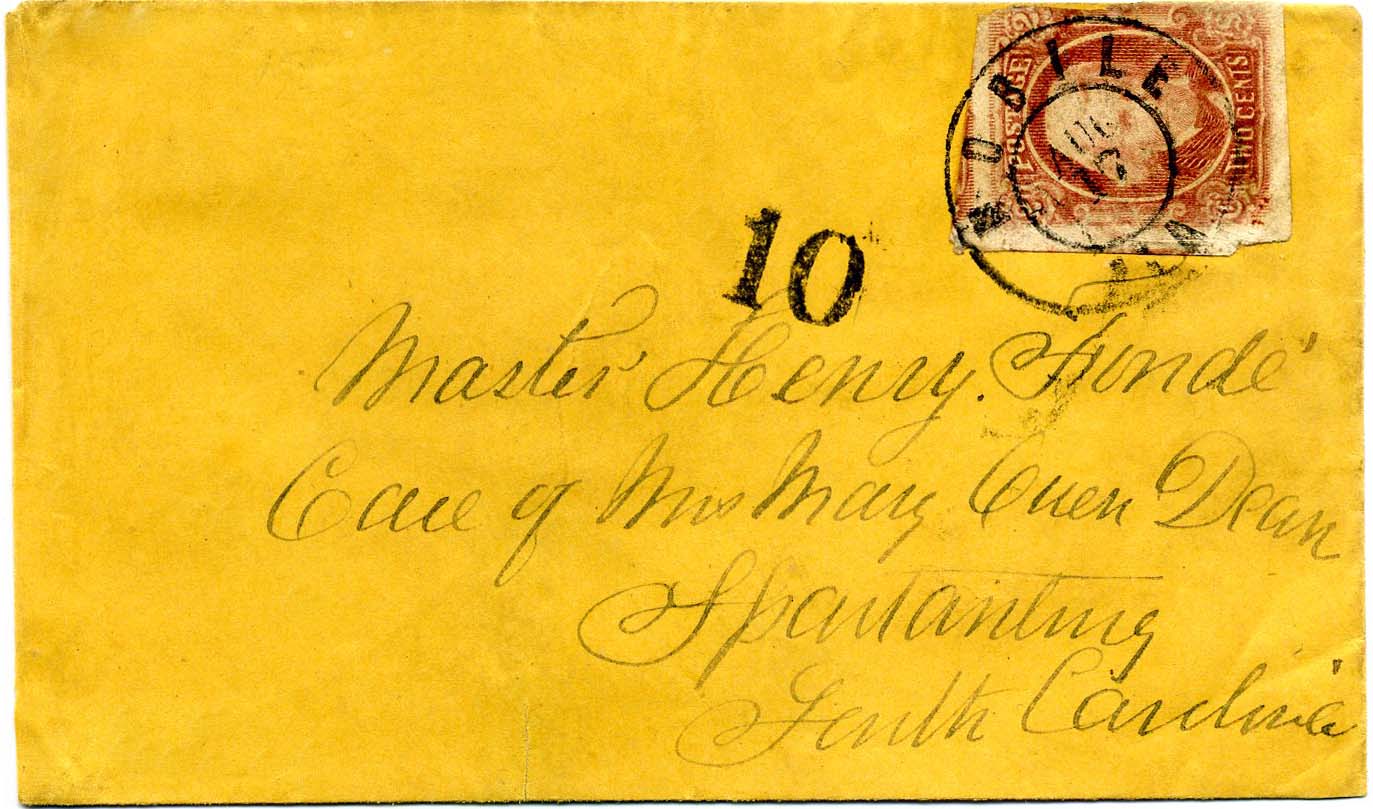 POSTAGE
TWO CENTS
MOBILE
ALA
AUG
10
Master Henry. Fonde'
Care of Mrs Mary Owen Dean
Spartanburg
South Carolina